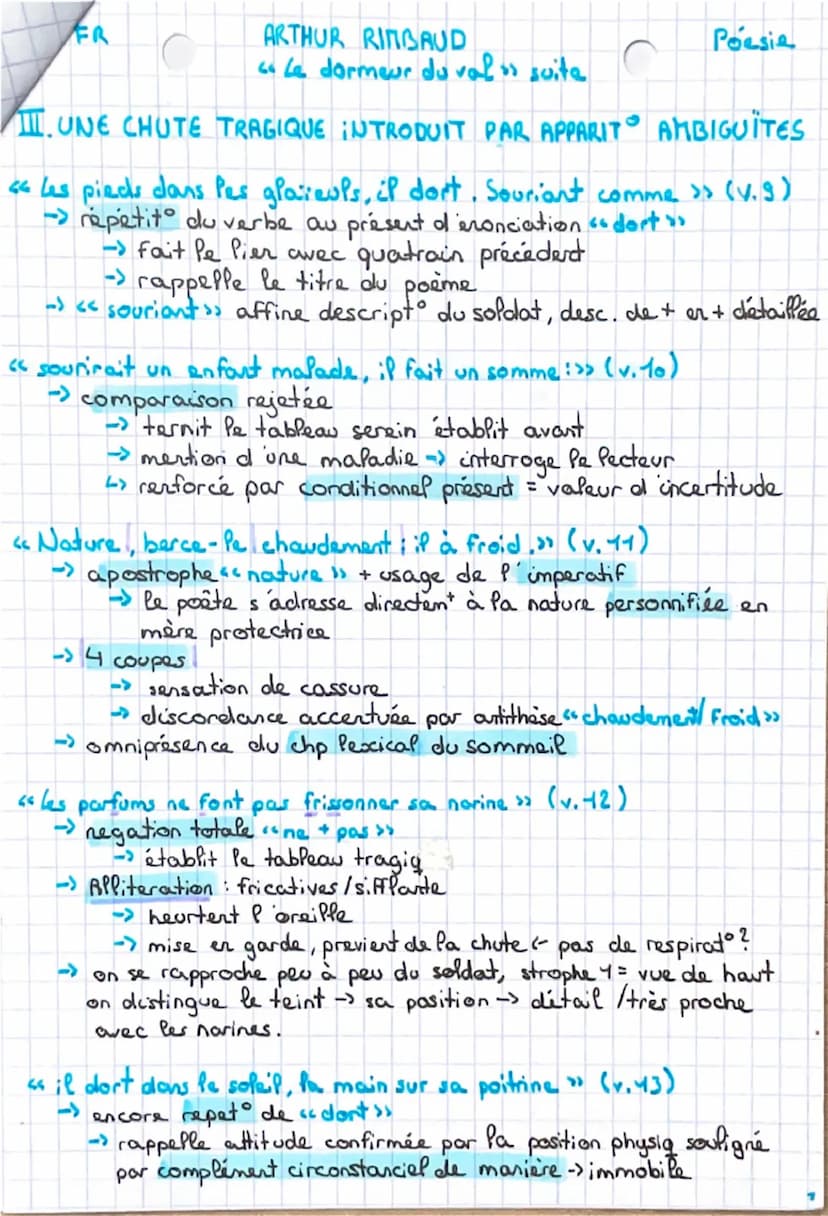 FR
ARTHUR RIMBAUD
Poésie
« Le dormeur du val » suite
III. UNE CHUTE TRAGIQUE INTRODUIT PAR APPARIT° AMBIGUÏTES
« Les pieds dans les glaïeuls, il dort. Souriant comme » (v.9)
→ répétit° du verbe au présent d'énonciation « dort »
→ fait le lien avec quatrain précédent
→ rappelle le titre du poème
→ « souriant » affine descript° du soldat, desc. de + en + détaillée
« sourirait un enfant malade, il fait un somme : » (v.10)
→ comparaison rejetée
→ ternit le tableau serein établit avant
→ mention d'une maladie → interroge le lecteur
↳ renforcé par conditionnel présent = valeur d'incertitude
« Nature, berce-le chaudement : il à froid. » (v.11)
→ apostrophe « nature » + usage de l'imperatif
→ le poète s'adresse directemt à la nature personnifiée en
mère protectrice
→ 4 coupes
→ sensation de cassure
→ discordance accentuée par antithèse « chaudement/froid »
→ omniprésence du chp lexical du sommeil
« Les parfums ne font pas frissonner sa narine » (v.12)
→ negation totale « ne + pas »
→ établit le tableau tragiq
→ Alliteration : fricatives/sifflante
→ heurtent l'oreille
→ mise en garde, previent de la chute ← pas de respirat° ?
→ on se rapproche peu à peu du soldat, strophe 1 = vue de haut
on distingue le teint → sa position → détail /très proche
avec les narines.
« il dort dans le soleil, la main sur sa poitrine » (v.13)
→ encore repet° de « dort »
→ rappelle attitude confirmée par la position physiq souligné
par complément circonstanciel de manière → immobile
1